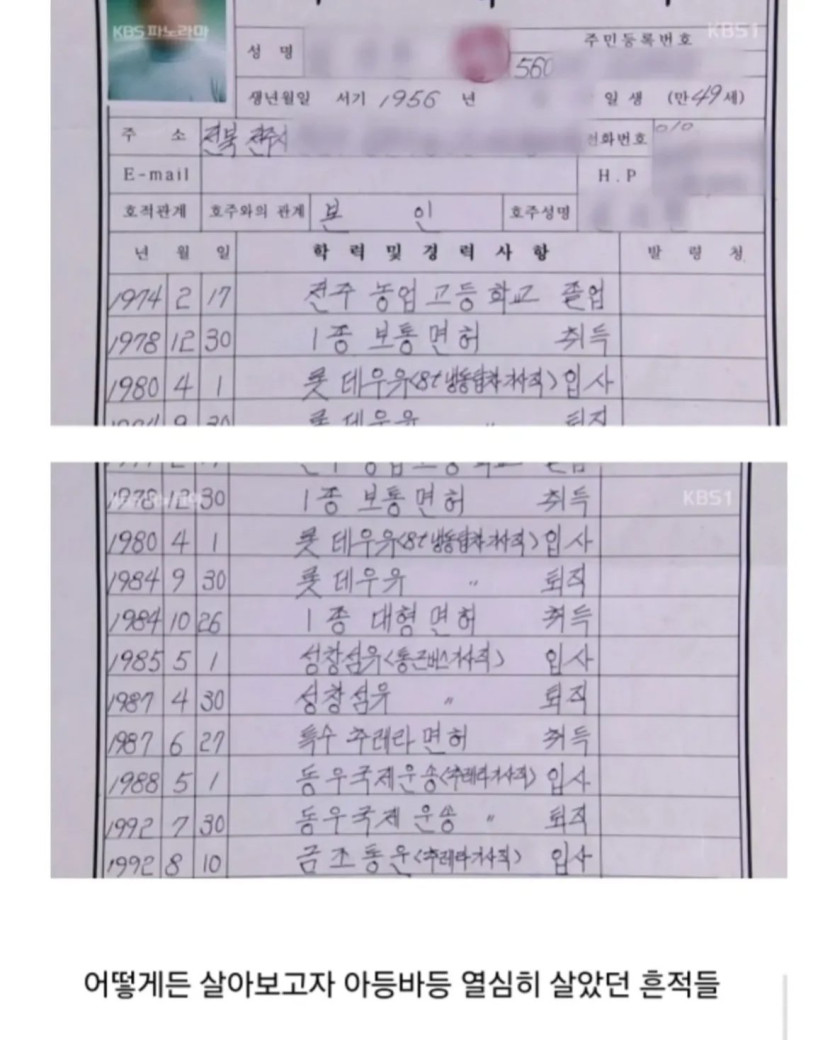 KBS 파노라마
KBS1
성 명
주민등록번호
560
생년월일 서기 1956 년 일생 (만 49세)
주 소 전북 전주시 전화번호 010
E-mail H.P
호적관계 호주와의 관계 본 인 호주성명
년 월 일 학 력 및 경 력 사 항 발 령 청
1974 2 17 전주 농업 고등 학교 졸업
1978 12 30 1종 보통면허 취득
1980 4 1 롯데우유(8t 냉동탑차기사직) 입사
1984 9 30 롯데우유 〃 퇴직
1978 12 30 1종 보통면허 취득
KBS1
1980 4 1 롯데우유(8t 냉동탑차기사직) 입사
1984 9 30 롯데우유 〃 퇴직
1984 10 26 1종 대형면허 취득
1985 5 1 성창섬유(통근버스기사직) 입사
1987 4 30 성창섬유 〃 퇴직
1987 6 27 특수 추레라 면허 취득
1988 5 1 동우국제운송(추레라기사직) 입사
1992 7 30 동우국제운송 〃 퇴직
1992 8 10 금조통운(추레라기사직) 입사
어떻게든 살아보고자 아등바등 열심히 살았던 흔적들